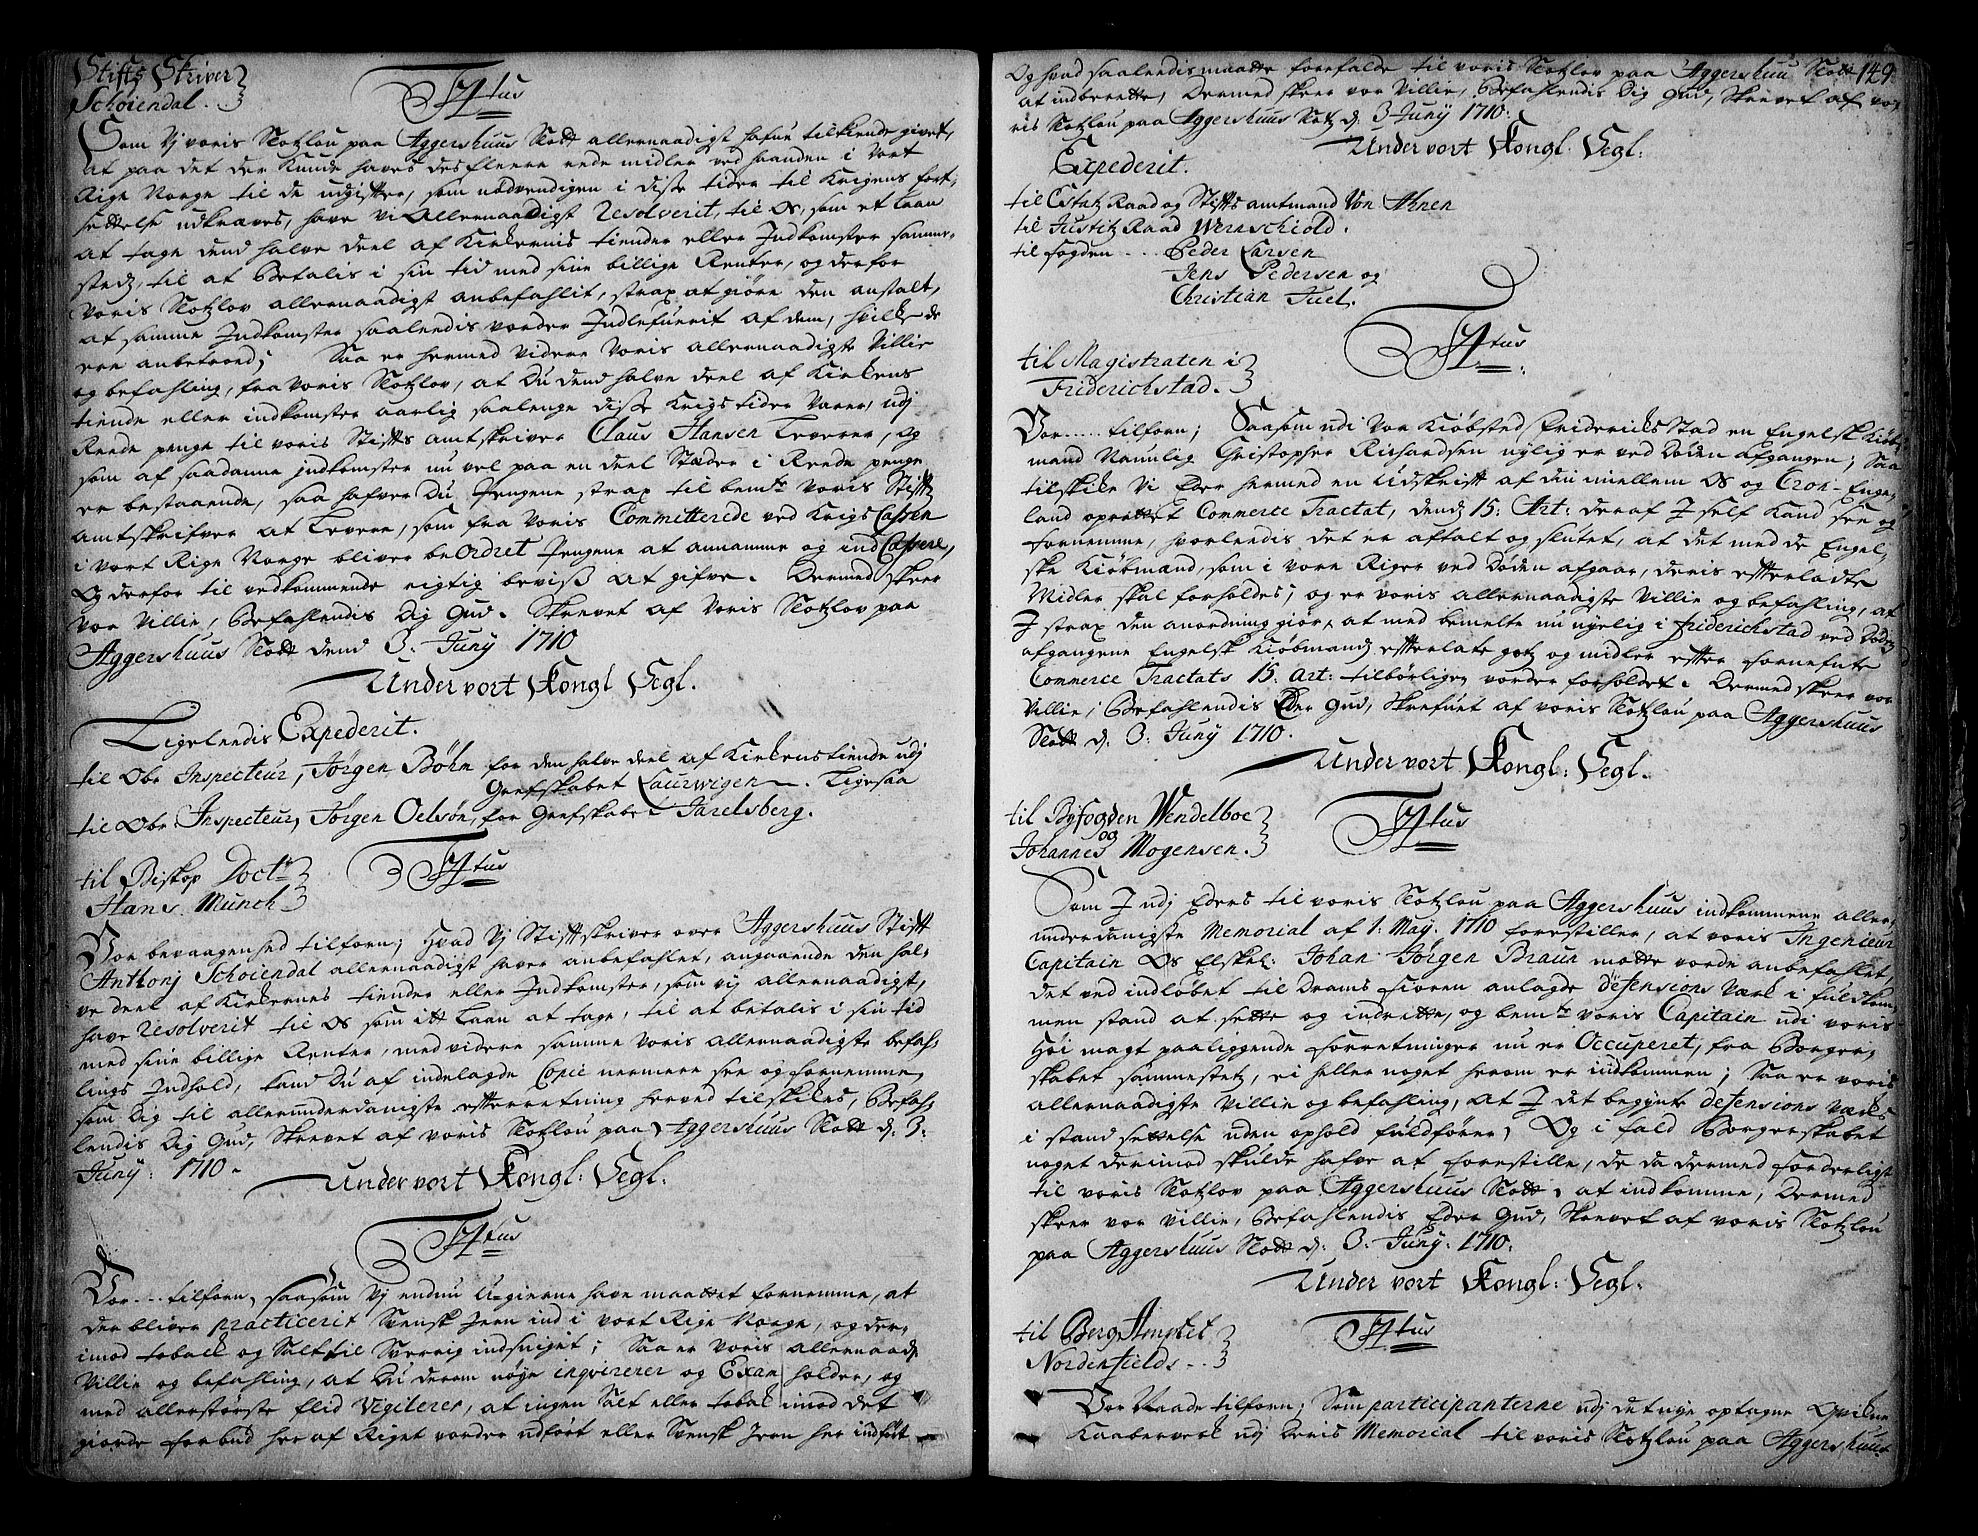 Stifts Skriver
Schøiendal.
Titus
Som Vj voris Slotzlou paa Aggershuus Slott allernaadigst hafue tilkiende givet,
at paa det der Kunde haves des fleere rede midler ved haanden i Vort
Rige Norge til de udgifter, som nødvendigen i disse tider til Krigens fort,
settelse udkræves, have vi Allernaadigst Resolverit, til Os, som et Laan
at tage dend halve deel af Kirkernis tiender eller Indkomster samme,
sted, til at Betalis i sin tid med sine billige Renter, og derfor
Voris Slotzlov allernaadigst anbefahlit, strax at giøre den anstalt,
at samme Indkomster saaledis vorder Indlefuerit af dem, hvilke de
ere anbetroed; Saa er hermed videre Voris allernaadigste Villie
og befahling, fra Voris Slotzlov, at Du dend halve deel af Kirkens
tiende eller indkomster aarlig saalenge disse Krigs tider Varer, udj
Reede penge til voris Stiftsamtskriver Claus Hansen Leverer, og
som af saadanne indkomster nu vel paa en deel Stæder i Reede penge
er bestaaende, saa hafver Du Pengene strax til bemte voris Stifts
amtskrifver at Levere, som fra Voris Committerede ved Krigs Cassen
i vort Rige Norge bliver beordret Pengene at annamme og ind Cassere,
Og derfor til vedkommende rigtig beviß at gifve. Dermed skeer
vor Villie, Befahlendis Dig Gud. Skrevet af Voris Slotzlov paa
Aggershuus Slott dend 3. Junij 1710
Under vort Kongl Segl.
Ligeledis Expederit.
til Obr Inspecteur, Jørgen Bøhn for den halve deel af Kirkenstiende udj
Grefskabet Laurwigen. Ligesaa
til Obr Inspecteur, Jørgen Oelsøn, for Grefskabet Jarelsberg.
Titus
til Biskop Doct
Hans Munch
Vor bevaagenhed tilforn; Hvad Vj Stiftskriver over Aggershuus Stift
Anthonj Schøiendal allernaadigst haver anbefahlet, angaaende den hal,
ve deel af Kirkernes tiender eller Indkomster, som vj allernaadigst,
have Resolverit til Os som itt Laan at tage, til at betalis i sin tid
med sine billige Renter, med videre samme Voris allernaadigste befah,
lings Indhold, kand Du af indelagde Copie nermere see og fornemme,
som Dig til allerunderdanigste efterretning herved tilskikes, Befah,
lendis Dig Gud, Skrevet af voris Slotzlou paa Aggershuus Slott d. 3.
Junij: 1710.
Under vort Kongl: Segl.
Titus
Vor... tilforn, saasom Vj endnu Ugierne have maattet fornemme, at
der bliver practicerit Svensk Jern ind i vort Rige Norge, og der,
imod toback og Salt til Sverrig indsniget; Saa er Voris allernaad:
Villie og befahling, at Du derom nøje inqvirerer og Exam holder, og
med allerstørste flid Vigilerer, at ingen Salt eller tobak imod det
giorde forbud her af Riget vorder udført eller Svensk Jern her indført
149.
Og hvad saaledis maatte forefalde til voris Slotzlov paa Aggershuu Slott
at indberette, Dermed skeer vor Villie, Befahlendis Dig Gud, Skrevet af vo,
ris Slotzlou paa Aggershuus Slot d. 3 Junij 1710.
Under vort Kongl. Segl:
Expederit.
til Etatz Raad og Stiftsamtmand Von Ahnen
til Justitz Raad Wernschiold.
til fogden... Peder Larsen
Jens Pedersen og
Christian Juel.
Titus
til Magistraten i
Friderichstad.
Vor.... tilforn; Saasom udi Vor Kiøbsted Friderichs Stad en Engelsk Kiøb,
mand Namnlig Christopher Richardsen nylig er ved Døden afgangen; Saa
tilskike Vi Eder hermed en Udskrift af din imellem Os og Cron-Enge,
land oprettet Commerce Tractat, dends 15: Art: deraf I self Kand see og
fornemme, hvorledis det er aftalt og slutet, at det med de Engel,
ske Kiøbmænd, som i vore Riger ved Døden afgaar, deris efterladte
Midler skal forholdes; og er voris allernaadigste Villie og befahling, at
I strax den anordning giør, at med bemelte nu nyelig i friderichstad ved Døden
afgangene Engelsk Kiøbmands efterlate gotz og midler efter forneffnte
Commerce Tractats 15. Art: tilbørligen vorder forholdet. Dermed skeer vor
Villie, Befahlendis Eder Gud, Skrefuet af voris Slotzlou paa Aggershuus
Slott d. 3. Junij 1710.
Under vort Kongl: Segl.
til Byfogden Wendelboe
og
Johannes Mogensen.
Titus
Som I udj Eders til voris Slotzlou paa Aggershuus indkommene aller,
underdanigste Memorial af 1. Maj. 1710 forestiller, at voris Ingenieur
Capitain Os Elskel: Johan Jørgen Braun motte vorde anbefahlet,
det ved indløbet til Drams fioren anlagde defensions værk i fuldkom,
men stand at sette og indrette, og bemte voris Capitain udi voris
Høi magt paaliggende forretninger nu er Occuperet, fra Borger,
skabet sammestetz, ei heller noget herom er indkommen; Saa er voris
allernaadigste Villie og befahling, at I det begynte defensions værk
i stand settelse uden ophold fuldfører, Og i fald Borgerskabet
noget derimod skulde hafve at forestille, de da dermed forderligst
til voris Slotzlov paa Aggershuus Slott, at indkomme, Dermed
skeer vor Villie, Befahlendis Eder Gud, Skrevet af voris Slotzlou
paa Aggershuus Slott d: 3. Junij. 1710.
Under vort Kongl: Segl.
til Berg Amptet
Nordenfields..
Titus
Vor Naade tilforn; Som participanterne udj det nye optagne Qvikne
Kaaberverk udj Deris Memorial til voris Slotzlou paa Aggershuus